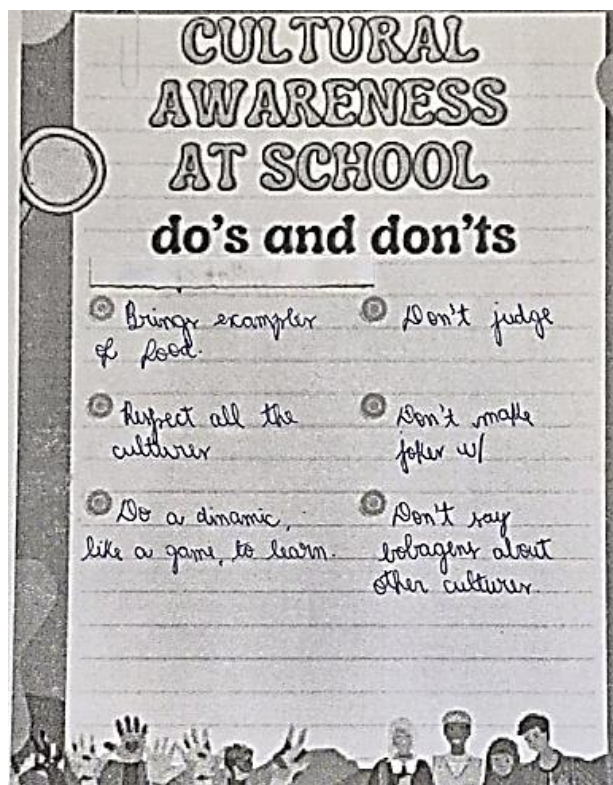 CULTURAL
AWARENESS
AT SCHOOL
do's and don'ts
Brings examples
of food.
Respect all the
cultures
Do a dinamic,
like a game, to learn.
Don't judge
Don't make
jokes w/
Don't say
bobagens about
other cultures.